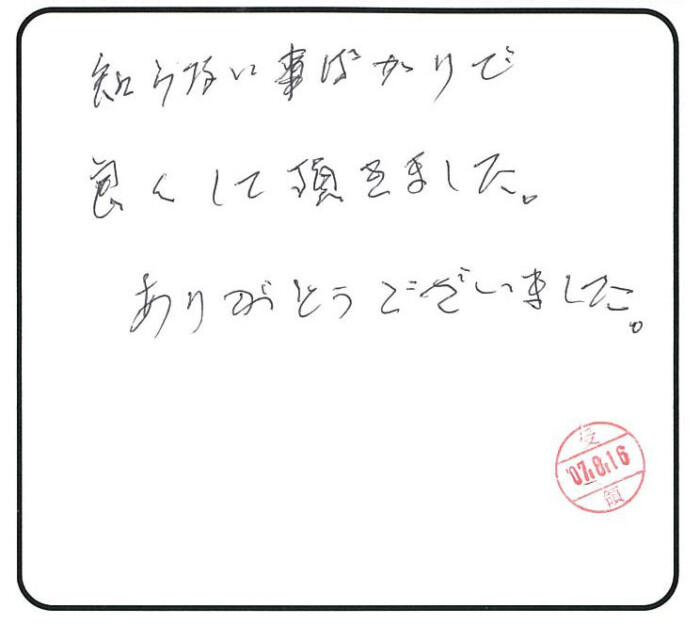 知らない事ばかりで
良くして頂きました。
ありがとうございました。
受
'07.8.16
領